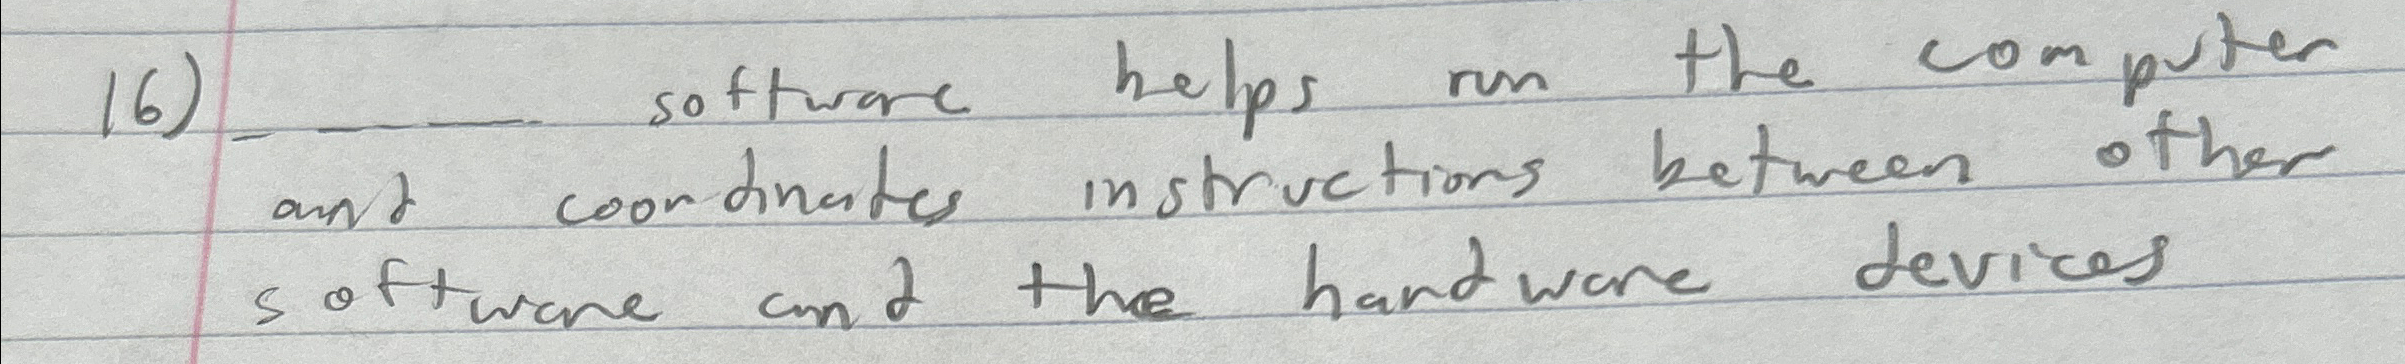 16) ____ software helps run the computer
and coordinates instructions between other
software and the hardware devices